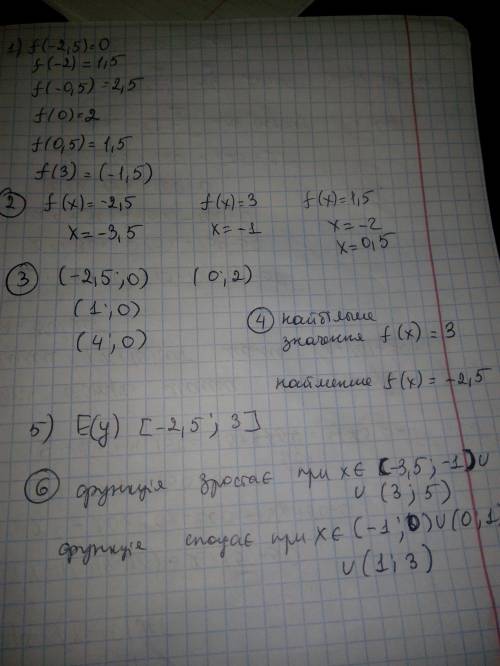 1) f(-2,5)=0
f(-2)=1,5
f(-0,5)=2,5
f(0)=2
f(0,5)=1,5
f(3)=(-1,5)
2 f(x)=-2,5 f(x)=3 f(x)=1,5
x=-3,5 x=-1 x=-2
x=0,5
3 (-2,5;0) (0;2)
(1;0)
(4;0)
4 найбільше
значення f(x)=3
найменше f(x)=-2,5
5) E(y) [-2,5;3]
6 функція зростає при x∈[-3,5;-1)∪
∪(3;5)
функція спадає при x∈(-1;0)∪(0;1)
∪(1;3)